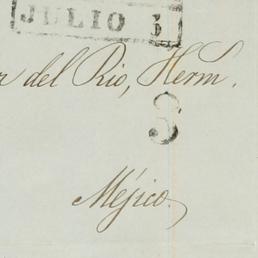 JULIO 5
del Rio, Herm.
S
Méjico.